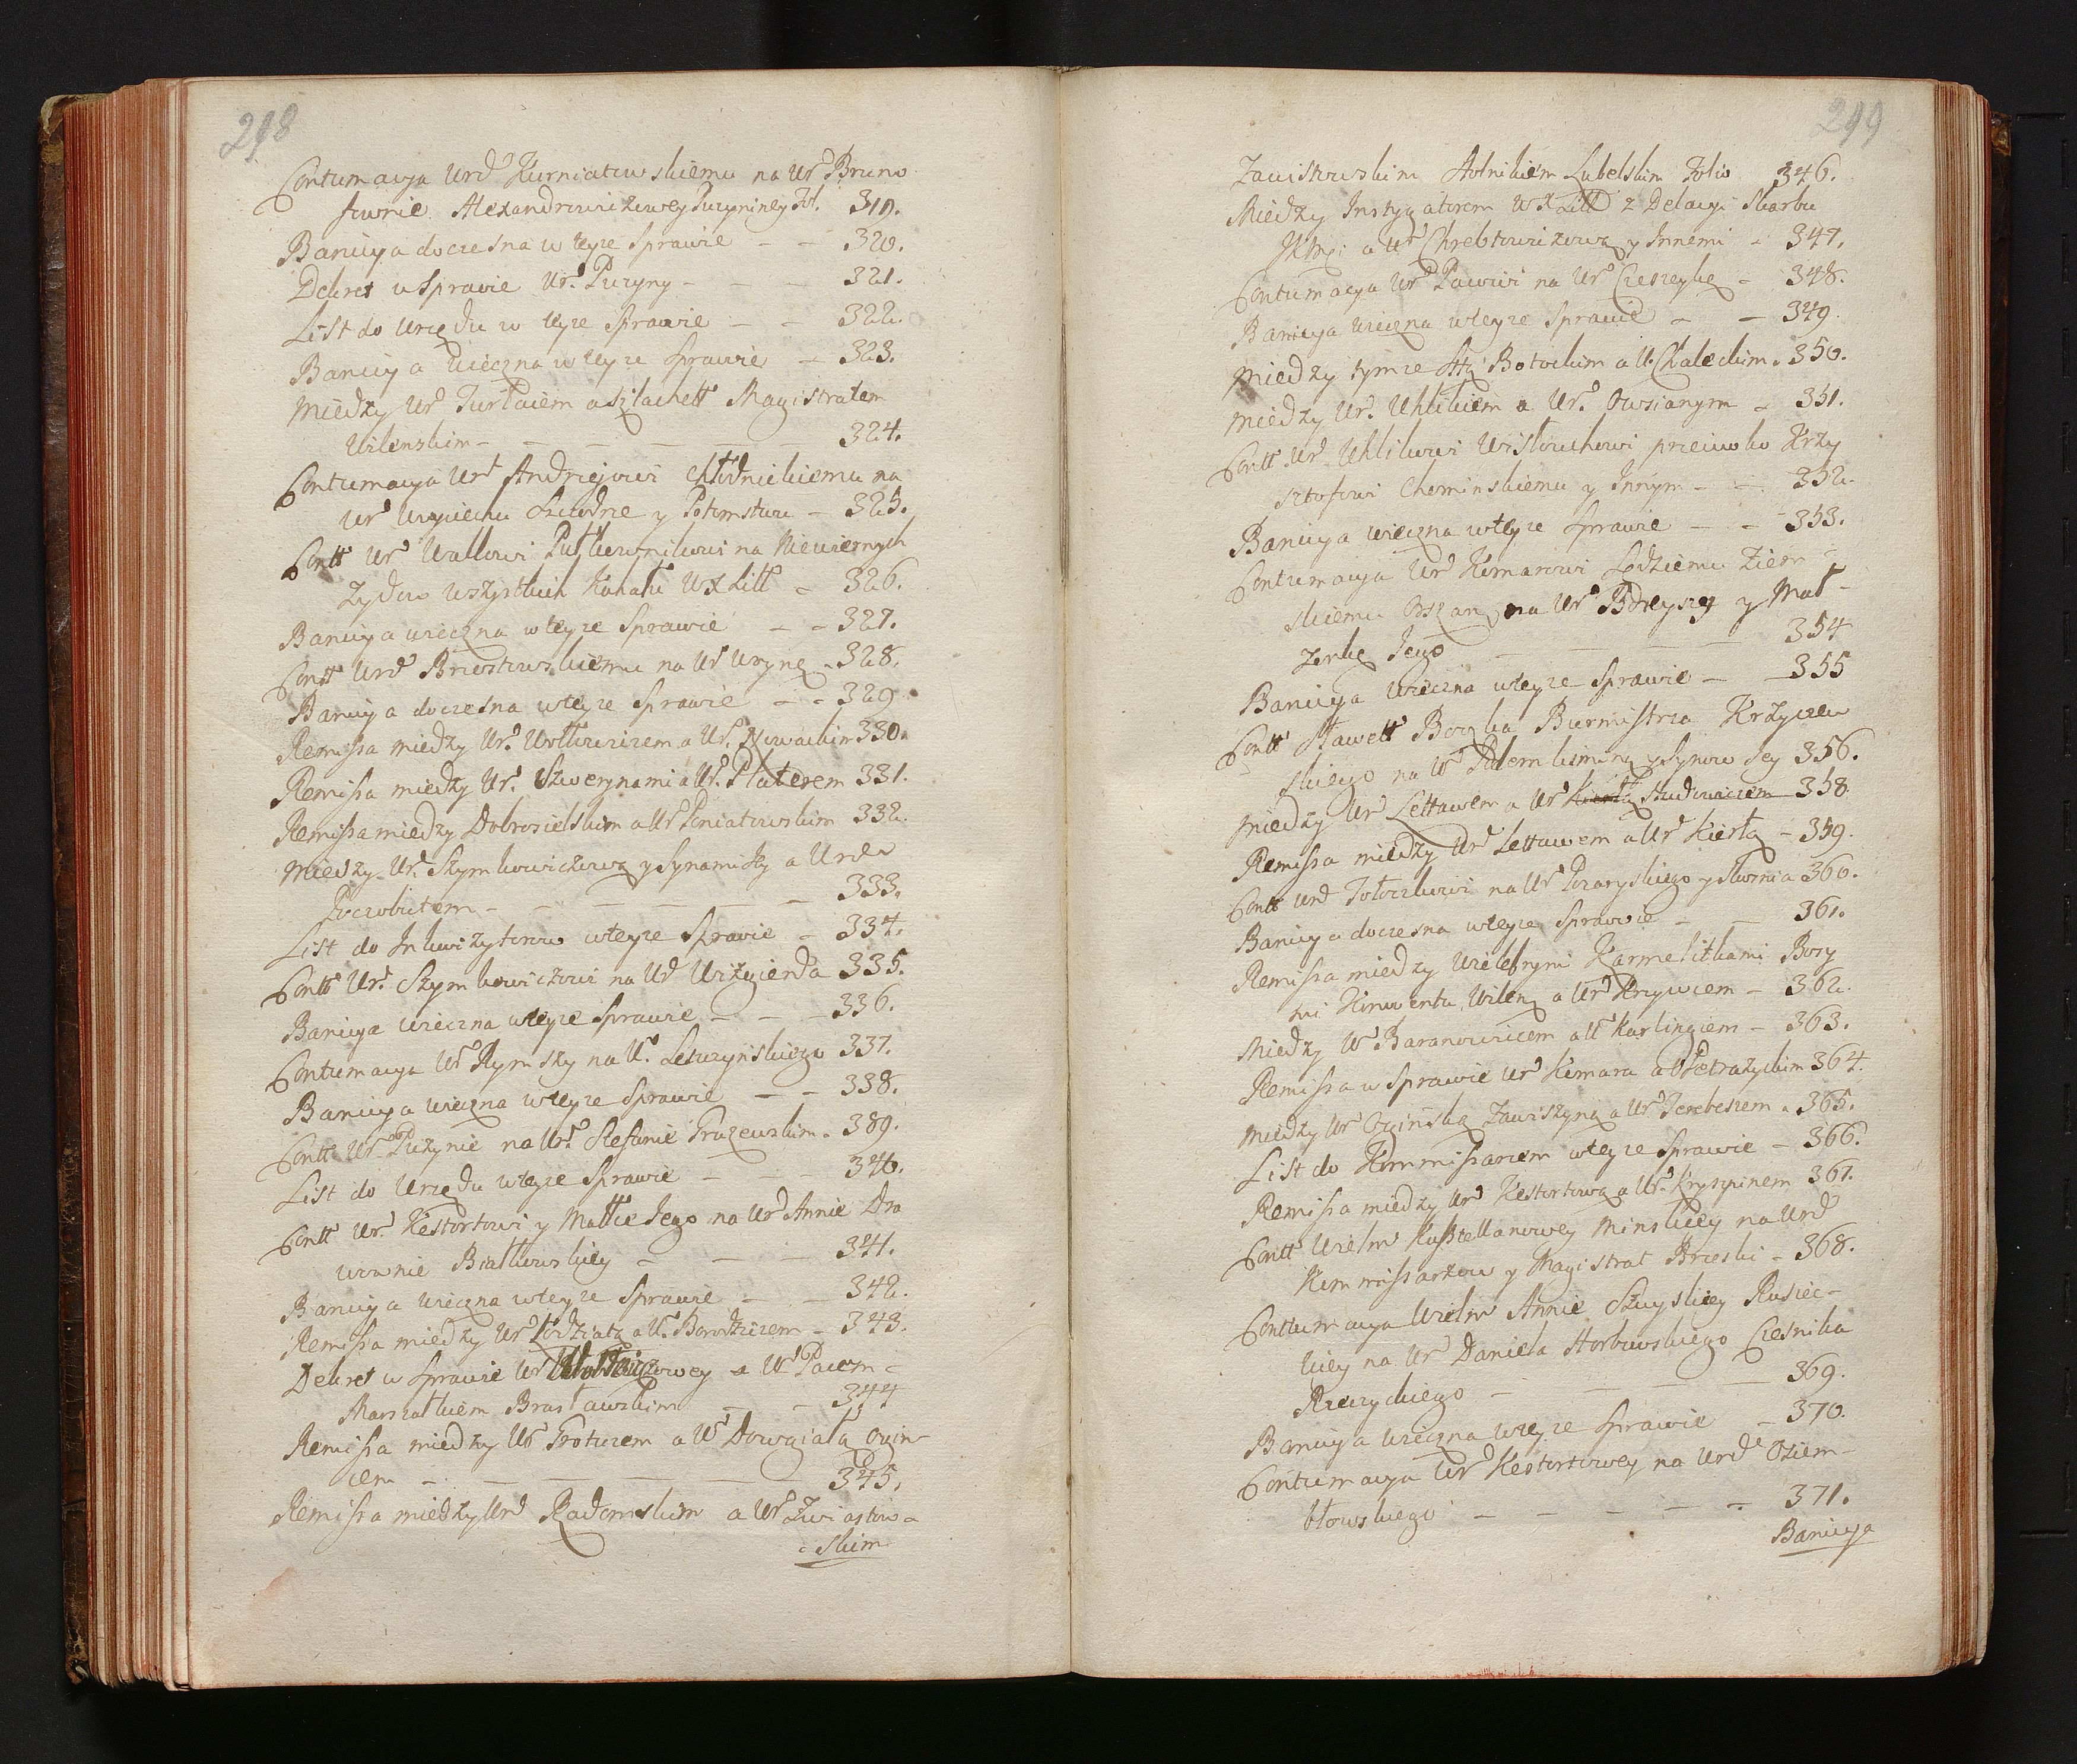 298
Contumacya Urd Kurniatowskiemu na Ur Bruno
fownie Alexandrowiczowey Puzyniney Fol. 319.
Banicya doczesna w teyze Sprawie - - 320.
Dekret w Sprawie Ur. Puzyny - - - 321.
List do Urzędu w teyze Sprawie - - 322.
Banicya wieczna w teyze Sprawie - 323.
Między Ur Turłaiem a Szlachett Magistratem
Wilenskim - - - - - 324.
Contumacya Ur Andrzejowi Chłodnickiemu na
Ur Woyciechu Szczodrze y Potomstwu - 325.
Contt Ur Wallowi Pułkownikowi na Niewiernych
Zydow wszystkich Kahału WXLitt - 326.
Banicya wieczna w teyze Sprawie - - 327.
Contt Urd Brzostowskiemu na Ur Urynę - 328.
Banicya doczesna w teyze Sprawie - - 329.
Remissa między Ur. Wołkowiczem a Ur. Nowackim 330.
Remissa między Ur. Szwerynami a Ur. Platerem 331.
Remissa między Dobrosielskim a Ur Poniatowskim 332.
Między Ur. Szymkowiczową y Synami Jey a Urdr
Poczobutem - - - - - 333.
List do Inkwizytorow w teyze Sprawie - 334.
Contt Ur. Szymkowiczowi na Ud Wizgierda 335.
Banicya wieczna w teyze Sprawie - - - 336.
Contumacya Ur Rymszy na U. Leszczyńskiego 337.
Banicya wieczna w teyze Sprawie - - 338.
Contt Ur Puzynie na Ur. Stefanie Gruzewskim - 389.
List do Urzędu w teyze Sprawie - - - 340.
Contt Ur. Kestortowi y Małłce Jego na Urd Annie Dro
wownie Białkowskiey - - - 341.
Banicya wieczna w teyze Sprawie - - 342.
Remissa między Ur Łodziatą a U. Borodziczem - 343.
Dekret w Sprawie Ur Wołłowiczowey a Ur Pacem =
Marszałkiem Brasławskim - - 344
Remissa między Ur Grotuzem a Ur Dowgiałą Ogin-
cem - - - - 345.
Remissa między Urd Radomskim a Ur Zwiastow=
skim
299
Zawistowskim Stolnikiem Lubelskim Folio 346.
Między Instygatorem WXLitt z Delacyi Skarbu
JKMci a Ur Chrebtowiczową y Innemi - 347.
Contumacya Ur Pawłowi na Ur Czeszeykę - 348.
Banicya wieczna w teyze Sprawie - - 349.
Między tymze Sttą Botockim a U. Chaleckim - 350.
Między Ur. Uhlikiem a Ur. Owsianym - 351.
Contt Ur Uhlikowi Wistouchowi przeciwko Krzy
sztofowi Chominskiemu y Innym - - 352.
Banicya wieczna w teyze Sprawie - - 353.
Contumacya Urd Komarowi Sędziemu Ziem=
skiemu Orszan, na Ur Bdreyszą y Mał-
zonkę Jego - - - - 354
Banicya wieczna w teyze Sprawie - - 355
Contt Sławett Boczka Burmistrza Krzyczew
skiego na Ur Polemkiminą y Synow Jey 356.
Między Ur Lettawem a Ur Studowiczem 358.
Remissa między Urd Lettawem a Ur Kiertą - 359.
Contt Urd Tołoczkowi na Ur Pozaryskiego y Stoznia 360.
Banicya doczesna w teyze Sprawie - - 361.
Remissa między Wielebnymi Karmelitkami Bosy
mi Konwentu Wileń a Ur Krzywcem - 362.
Między Ur Baranowiczem a U Karlingiem - 363.
Remissa w Sprawie Ur Komara a Petrazyckim 364.
Między Ur Oginską Zawiszyną a Ur Jerebeszem - 365.
List do Kommissarzem w teyze Sprawie - 366.
Remissa między Urd Kestortową a Ur. Kryspinem 367.
Contt Wielm Kasztellanowey Minskiey na Urd
Kommissarzow y Magistrat Brzeski - 368.
Contumacya Wielm Annie Szuyskiey Rusiec-
kiey na Ur Daniela Horbowskiego Czesnika
Rzeczyckiego - - - - 369.
Banicya wieczna w teyze Sprawie - 370.
Contumacya Urd Kestortowey na Urd Oziem-
błowskiego - - - - - 371.
Banicya